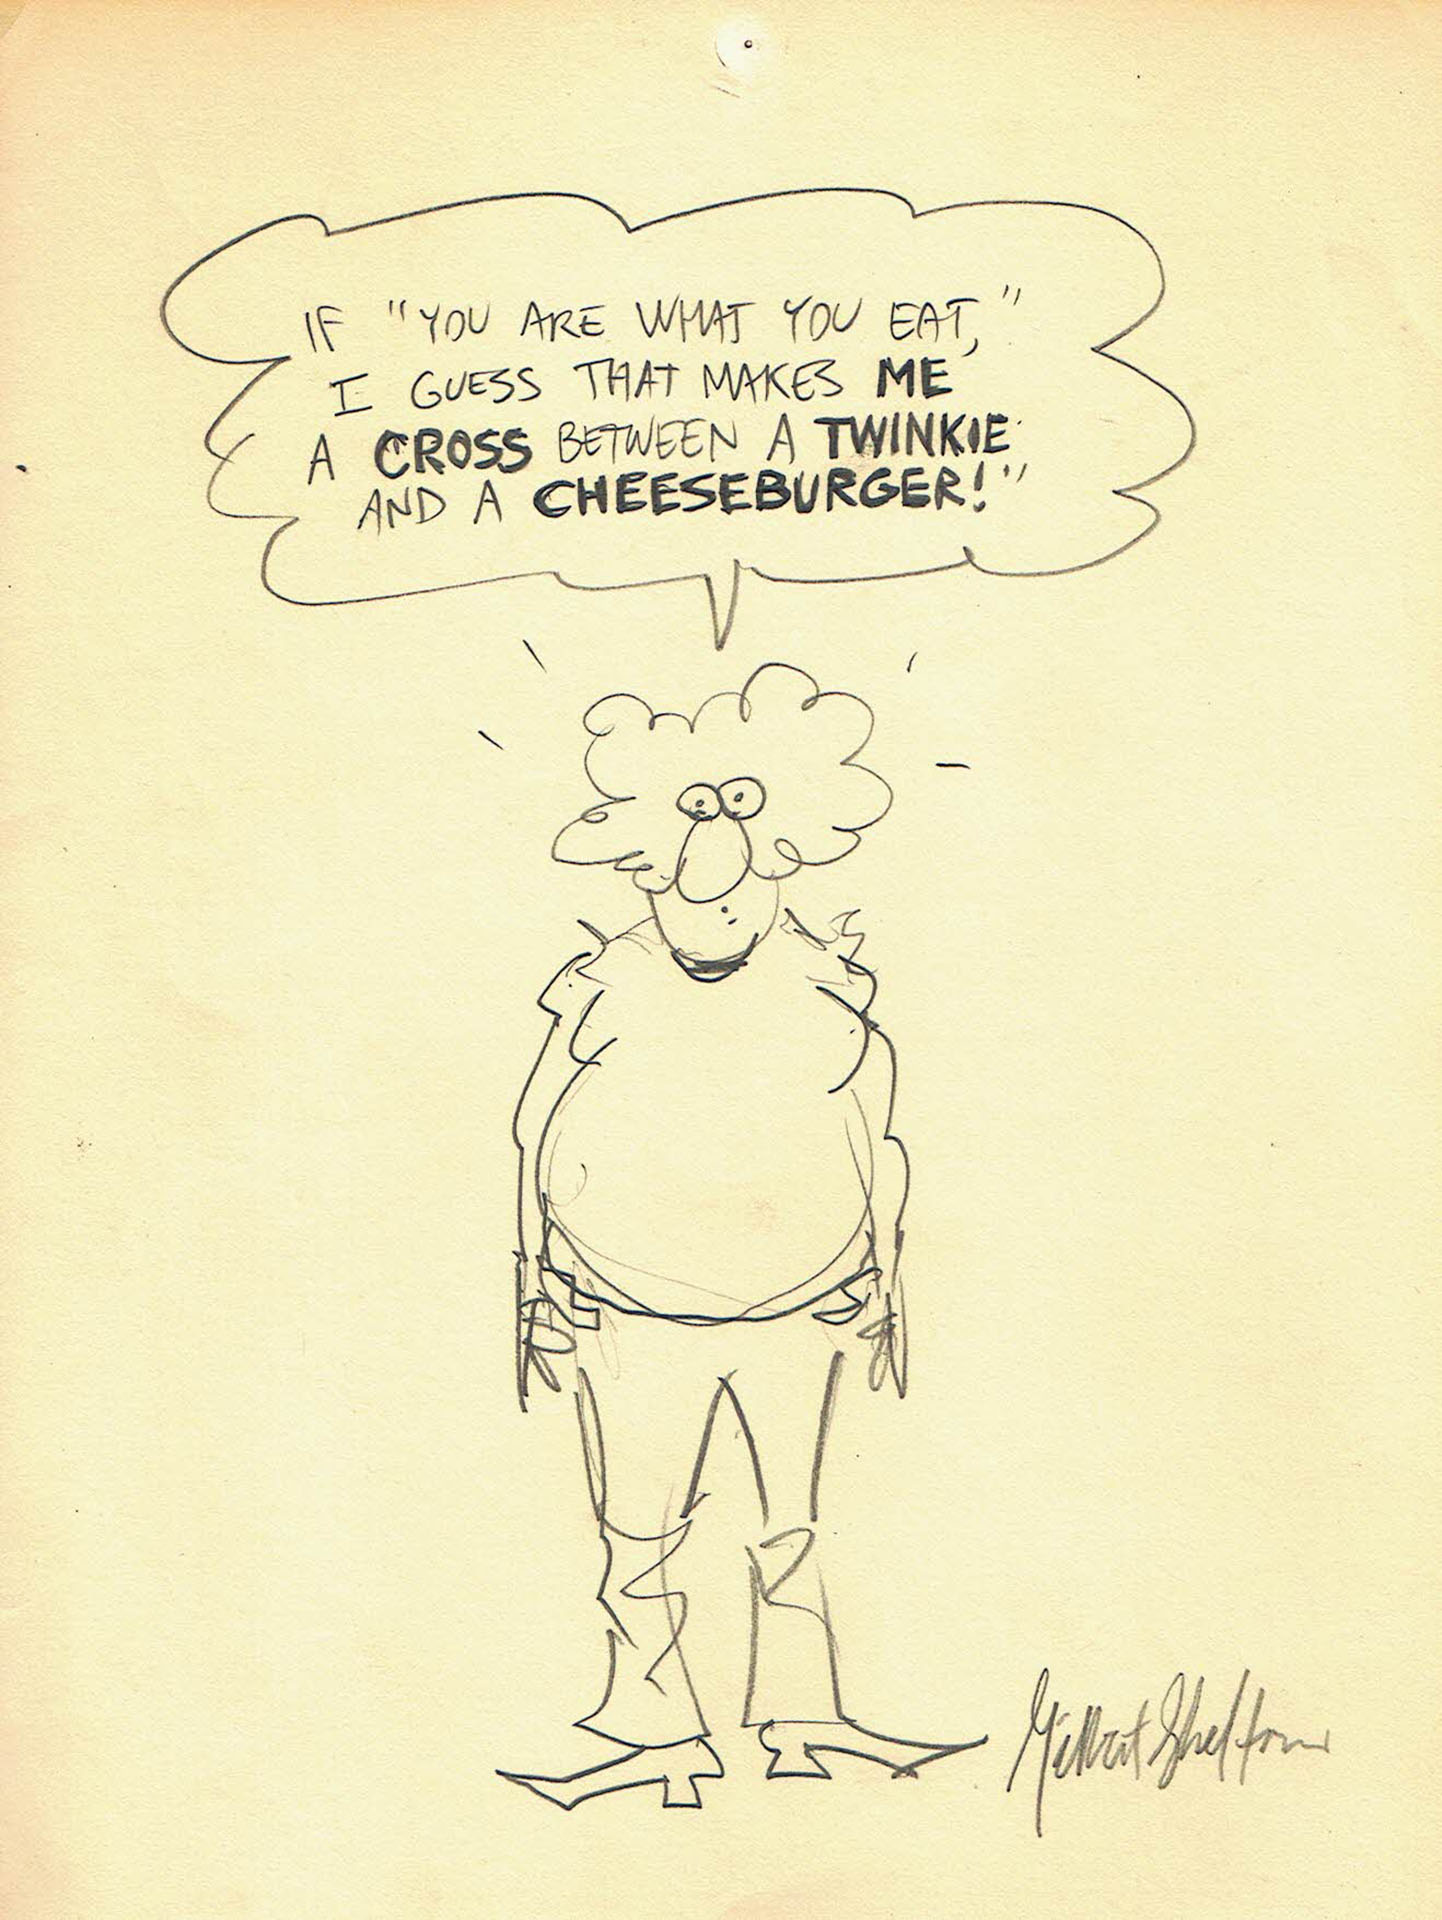 IF "YOU ARE WHAT YOU EAT,"
I GUESS THAT MAKES ME
A CROSS BETWEEN A TWINKIE
AND A CHEESEBURGER!"
Gilbert Shelton